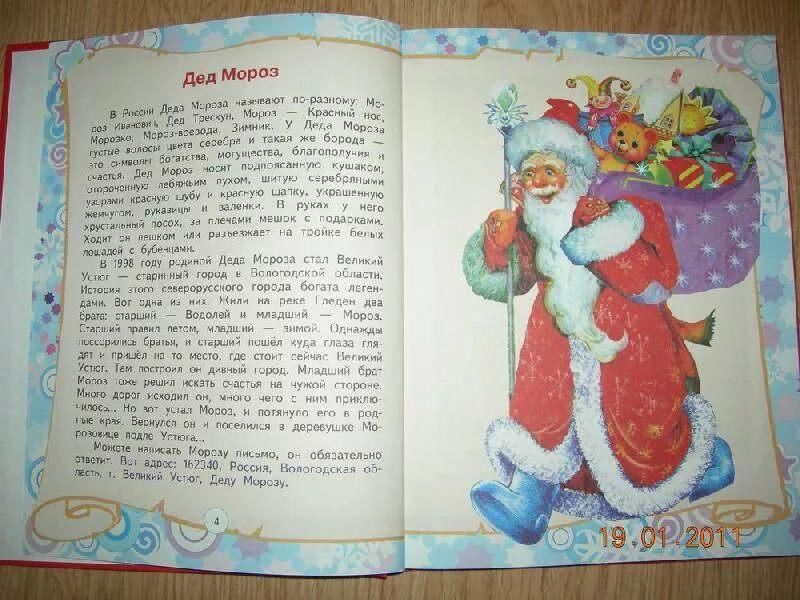 Дед Мороз
В России Деда Мороза называют по-разному: Мо-
роз Иванович, Дед Трескун, Мороз — Красный нос,
Морозко, Мороз-воевода, Зимник. У Деда Мороза
густые волосы цвета серебра и такая же борода —
это символы богатства, могущества, благополучия и
счастья. Дед Мороз носит подпоясанную кушаком,
отороченную лебяжьим пухом, шитую серебряными
узорами красную шубу и красную шапку, украшенную
жемчугом, рукавицы и валенки. В руках у него
хрустальный посох, за плечами мешок с подарками.
Ходит он пешком или разъезжает на тройке белых
лошадей с бубенцами.
В 1998 году родиной Деда Мороза стал Великий
Устюг — старинный город в Вологодской области.
История этого северорусского города богата леген-
дами. Вот одна из них. Жили на реке Гледен два
брата: старший — Водолей и младший — Мороз.
Старший правил летом, младший — зимой. Однажды
поссорились братья, и старший пошёл куда глаза гля-
дят и пришёл на то место, где стоит сейчас Великий
Устюг. Там построил он дивный город. Младший брат
Мороз тоже решил искать счастья на чужой стороне.
Много дорог исходил он, много чего с ним приклю-
чилось... Но вот устал Мороз, и потянуло его в род-
ные края. Вернулся он и поселился в деревушке Мо-
розовице подле Устюга...
Можете написать Морозу письмо, он обязательно
ответит. Вот адрес: 162340, Россия, Вологодская об-
ласть, г. Великий Устюг, Деду Морозу.
4
19.01.2011